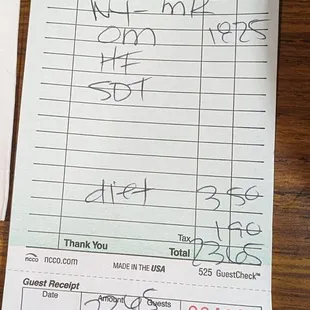 NY-MR
OM 1825
HF
SDT
diet 350
Tax 190
Thank You Total 2365
ncco ncco.com MADE IN THE USA 525 GuestCheck™
Guest Receipt
Date Amount Guests
2365